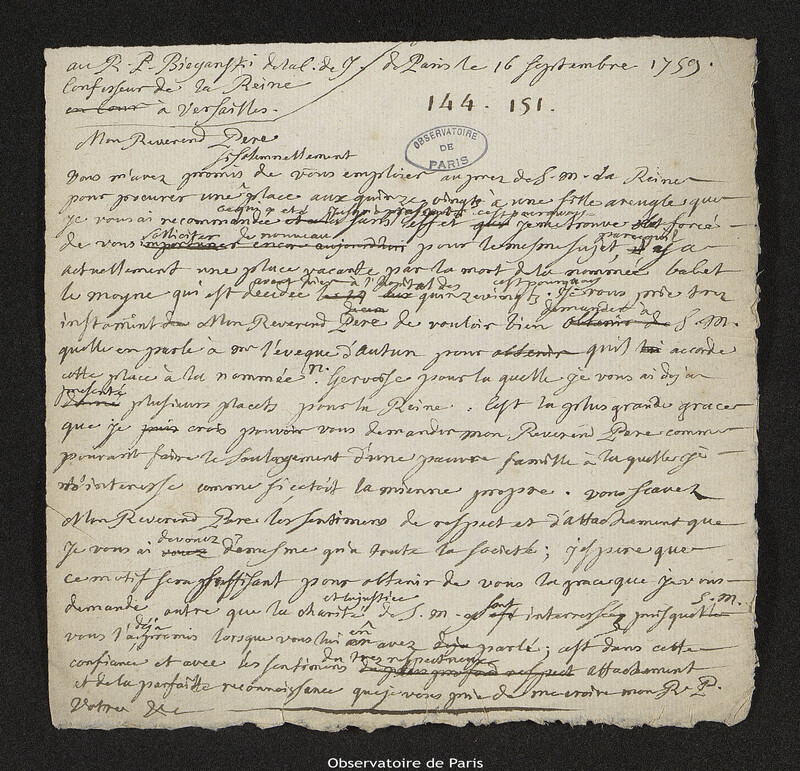 au R. P. Bieganski de la C. de J. de Paris le 16 septembre 1759.
Confesseur de la Reine
en cour à Versailles.
144. 151.
OBSERVATOIRE
DE
PARIS
Mon Reverend Pere
si solemnellement
Vous m'avez promis de vous emploier auprez de S. m. la Reine
pour procurer une place aux quinze vingts à une fille aveugle que
je vous ai recommandé sans effet que je me trouve forcé
solliciter de nouveau
de vous importuner encore aujourdhui pour le mesme sujet, il y a
actuellement une place vacante par la mort de la nommée babet
avant hier à l'hopital des c'est pourquoi
le moyne qui est decedée quinze vingts. Je vous prie trez
demander à
instament Mon Reverend Pere de vouloir bien obtenir de S. M.
quelle en parle à mr l'eveque d'autun pour obtenir qu'il lui accorde
cette place à la nommée Gervoise pour la quelle je vous ai deja
presenté
donné plusieurs placets pour la Reine. C'est la plus grande grace
que je puis crois pouvoir vous demander mon Reverend Pere comme
pouvant faire le soulagement d'une pauvre famille à laquelle je
m'interesse comme si c'etoit la mienne propre. vous scavez
Mon Reverend Pere les sentimens de respect et d'attachement que
devouez
je vous ai voué de mesme qu'a toute la société; j'espere que
ce motif sera suffisant pour obtenir de vous la grace que je vous
et la justice
demande outre que la charité de S. m. sont interressez puisquelle S. M.
déja
vous l'a promis lorsque vous lui en avez deja parlé; c'est dans cette
du tres respectueux
confiance et avec les sentimens du plus profond respect attachement
et de la parfaitte reconnoissance que je vous prie de me croire mon R. P.
Votre &c
Observatoire de Paris